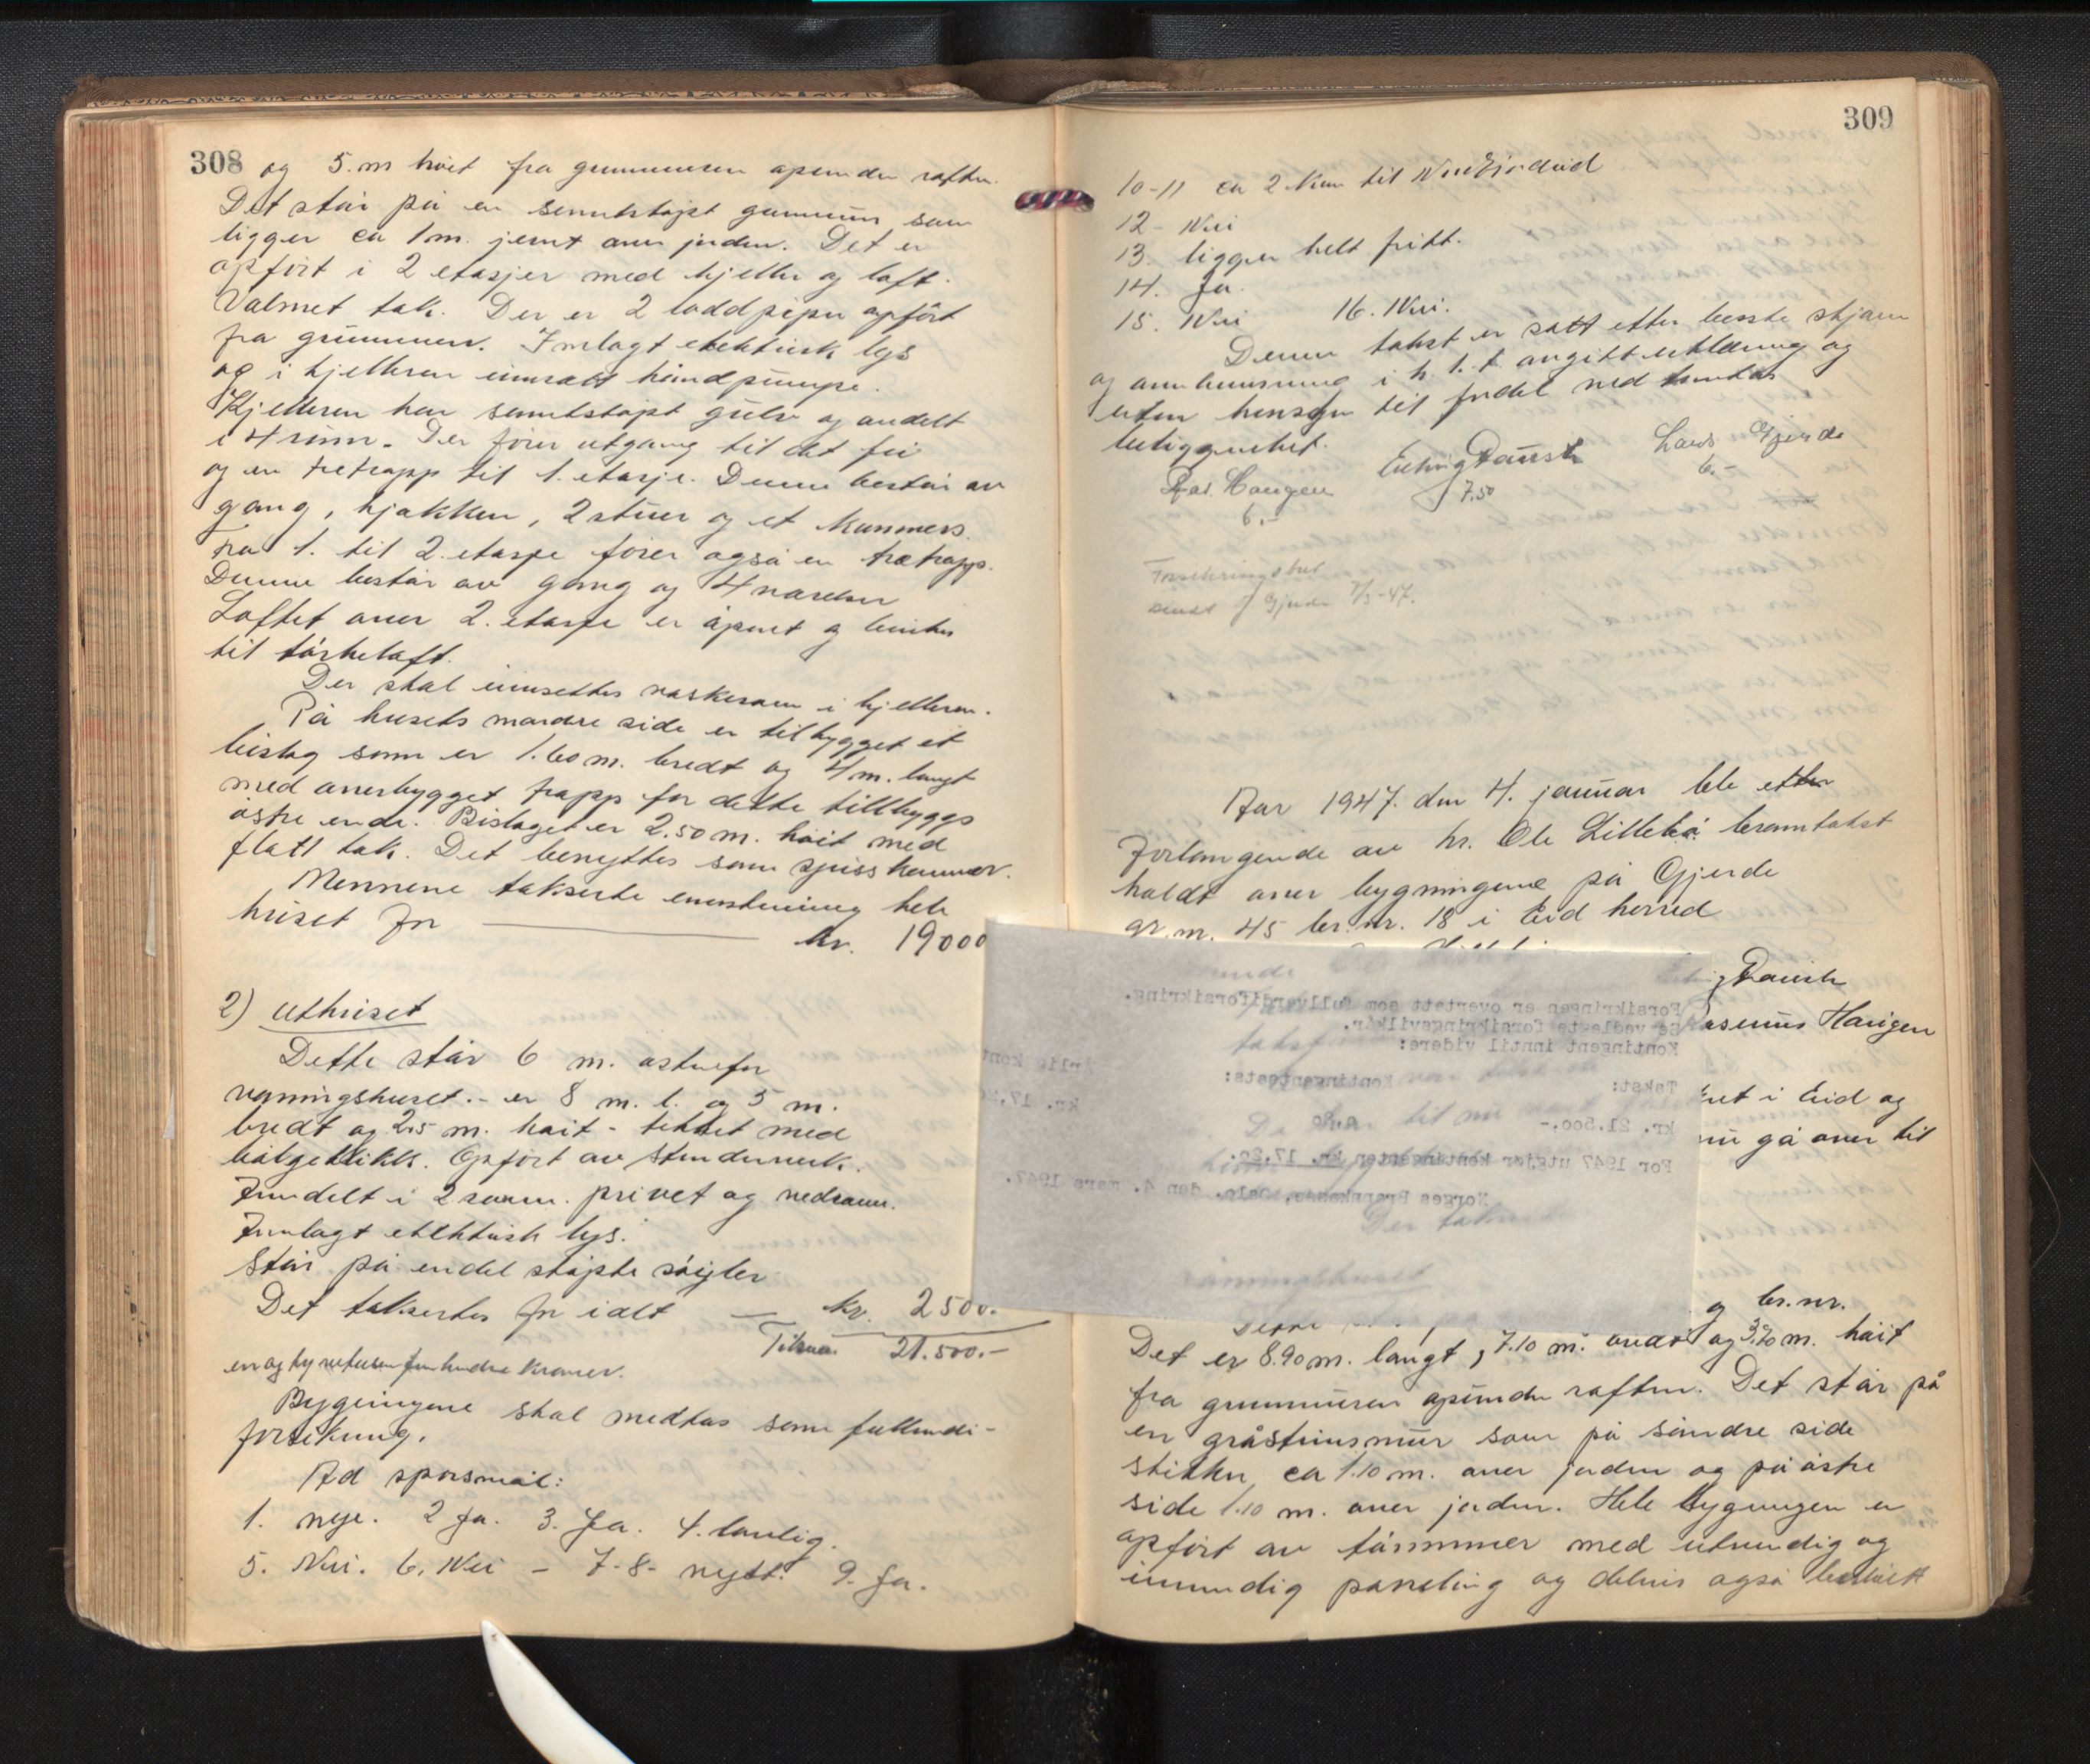 308
og 5 m høit fra grunmuren apunder raften.
Det står på en sementstøpt grunmur som
ligger ca 1 m. jemt over jorden. Det er
opført i 2 etasjer med kjeller og loft.
Valmet tak. Der er 2 loddpiper opført
fra grunmuren. Innlagt elektrisk lys
og i kjelleren innsatt håndpumpe.
Kjelleren har sementstøpt gulv og andelt
i 4 rum. Der fører utgang til det fri
og en tretrapp til 1. etasje. Denne består av
gang, kjøkken, 2 stuer og et kammers.
Fra 1. til 2. etasje fører også en trætrapp.
Denne består av gang og 4 værelser
Loftet over 2. etasje er åpent og benittes
til tørkeloft.
Der skal innsettes vaskerom i kjelleren.
På husets nordre side er tilbygget et
bislag som er 1.60 m. bredt og 4 m. langt
med overbygget trapp for dette tillbyggs
østre ende. Bislaget er 2.50 m. høit med
flatt tak. Det benyttes som spisskammer.
Mennene takserte enstemmig hele
huset for kr. 19000
2) Uthuset
Dette står 6 m. østenfor
våningshuset. - er 8 m. l. og 5 m.
bredt og 2.5 m. høit - tekket med
bølgeblikk. Opført av stenderverk.
Inndelt i 2 rom. privet og vedrom.
Innlagt elektrisk lys.
Står på endel støpte søiler
Det taksertes for ialt — kr. 2500.-
Tilsam. 21.500.-
en og ty ve tusen fem hundre kroner.
Bygningene skal medtas som fullverdi-
forsikring.
Ad spørsmål:
1. nye. 2 Ja. 3. Ja. 4. lovlig.
5. Nei. 6. Nei - 7-8- nytt. 9. Ja.
309
10-11 ca 2 km til Nordfjordeid
12- Nei
13. ligger helt fritt.
14. Ja.
15. Nei 16. Nei.
Denne takst er satt etter beste skjøn
og overbevisning i h. t. t. avgitt erklæring og
uten hensyn til fordel ved tomtens
beliggenhet.
Ras. Haugen Ludvig Daursk Lars Gjerde
6.- 7.50 6.-
Forsikringsbrev
sendt J Gjerde 7/3-47.
Aar 1947. den 4. januar ble etter
forlangende av hr. Ole Lillebø branntakst
holdt over bygningene på Gjerde
gr. nr. 45 br. nr. 18 i Eid herred
Forsikringen er overtatt som fullverdiforsikring.
Se vedlagte forsikringsvilkår.
Kontingent inntil videre:
Takst: Kontingentgsats: Årlig kont
kr. 21.500.- kr. 17.20
For 1947 utgjør kontingenten kr. 17.20.
Norges Brannkasse, Oslo, den 4. mars 1947.
Daursk
Rasmus Haugen
i Eid og
nu gå over til
og br. nr.
Det er 8.90 m. langt, 7.10 m. bredt og 3.70 m. høit
fra grunmuren apunder raften. Det står på
en gråstensmur som på søndre side
stikker ca 1.10 m. over jorden og på østre
side 1.10 m. over jorden. Hele bygningen er
opført av tømmer med utvendig og
innvendig paneling og delvis også